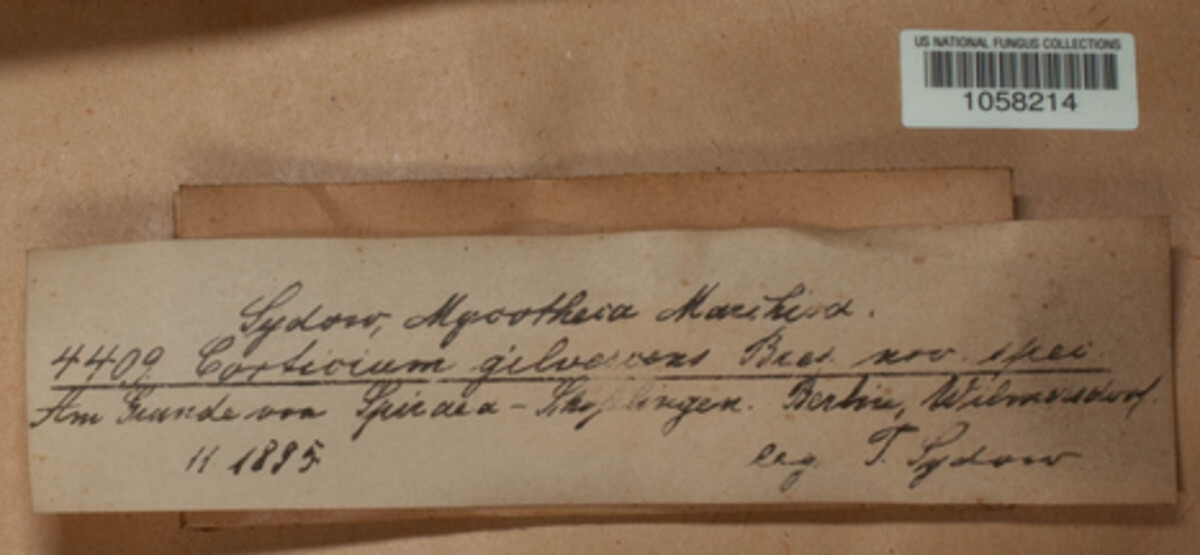 US NATIONAL FUNGUS COLLECTIONS
1058214
Sydow, Mycotheca Marchica.
4409 Corticium gilvescens Bres. nov. spec.
Am Grunde von Spiraea-Schößlingen. Berlin, Wilmersdorf.
11 1895 leg. P. Sydow